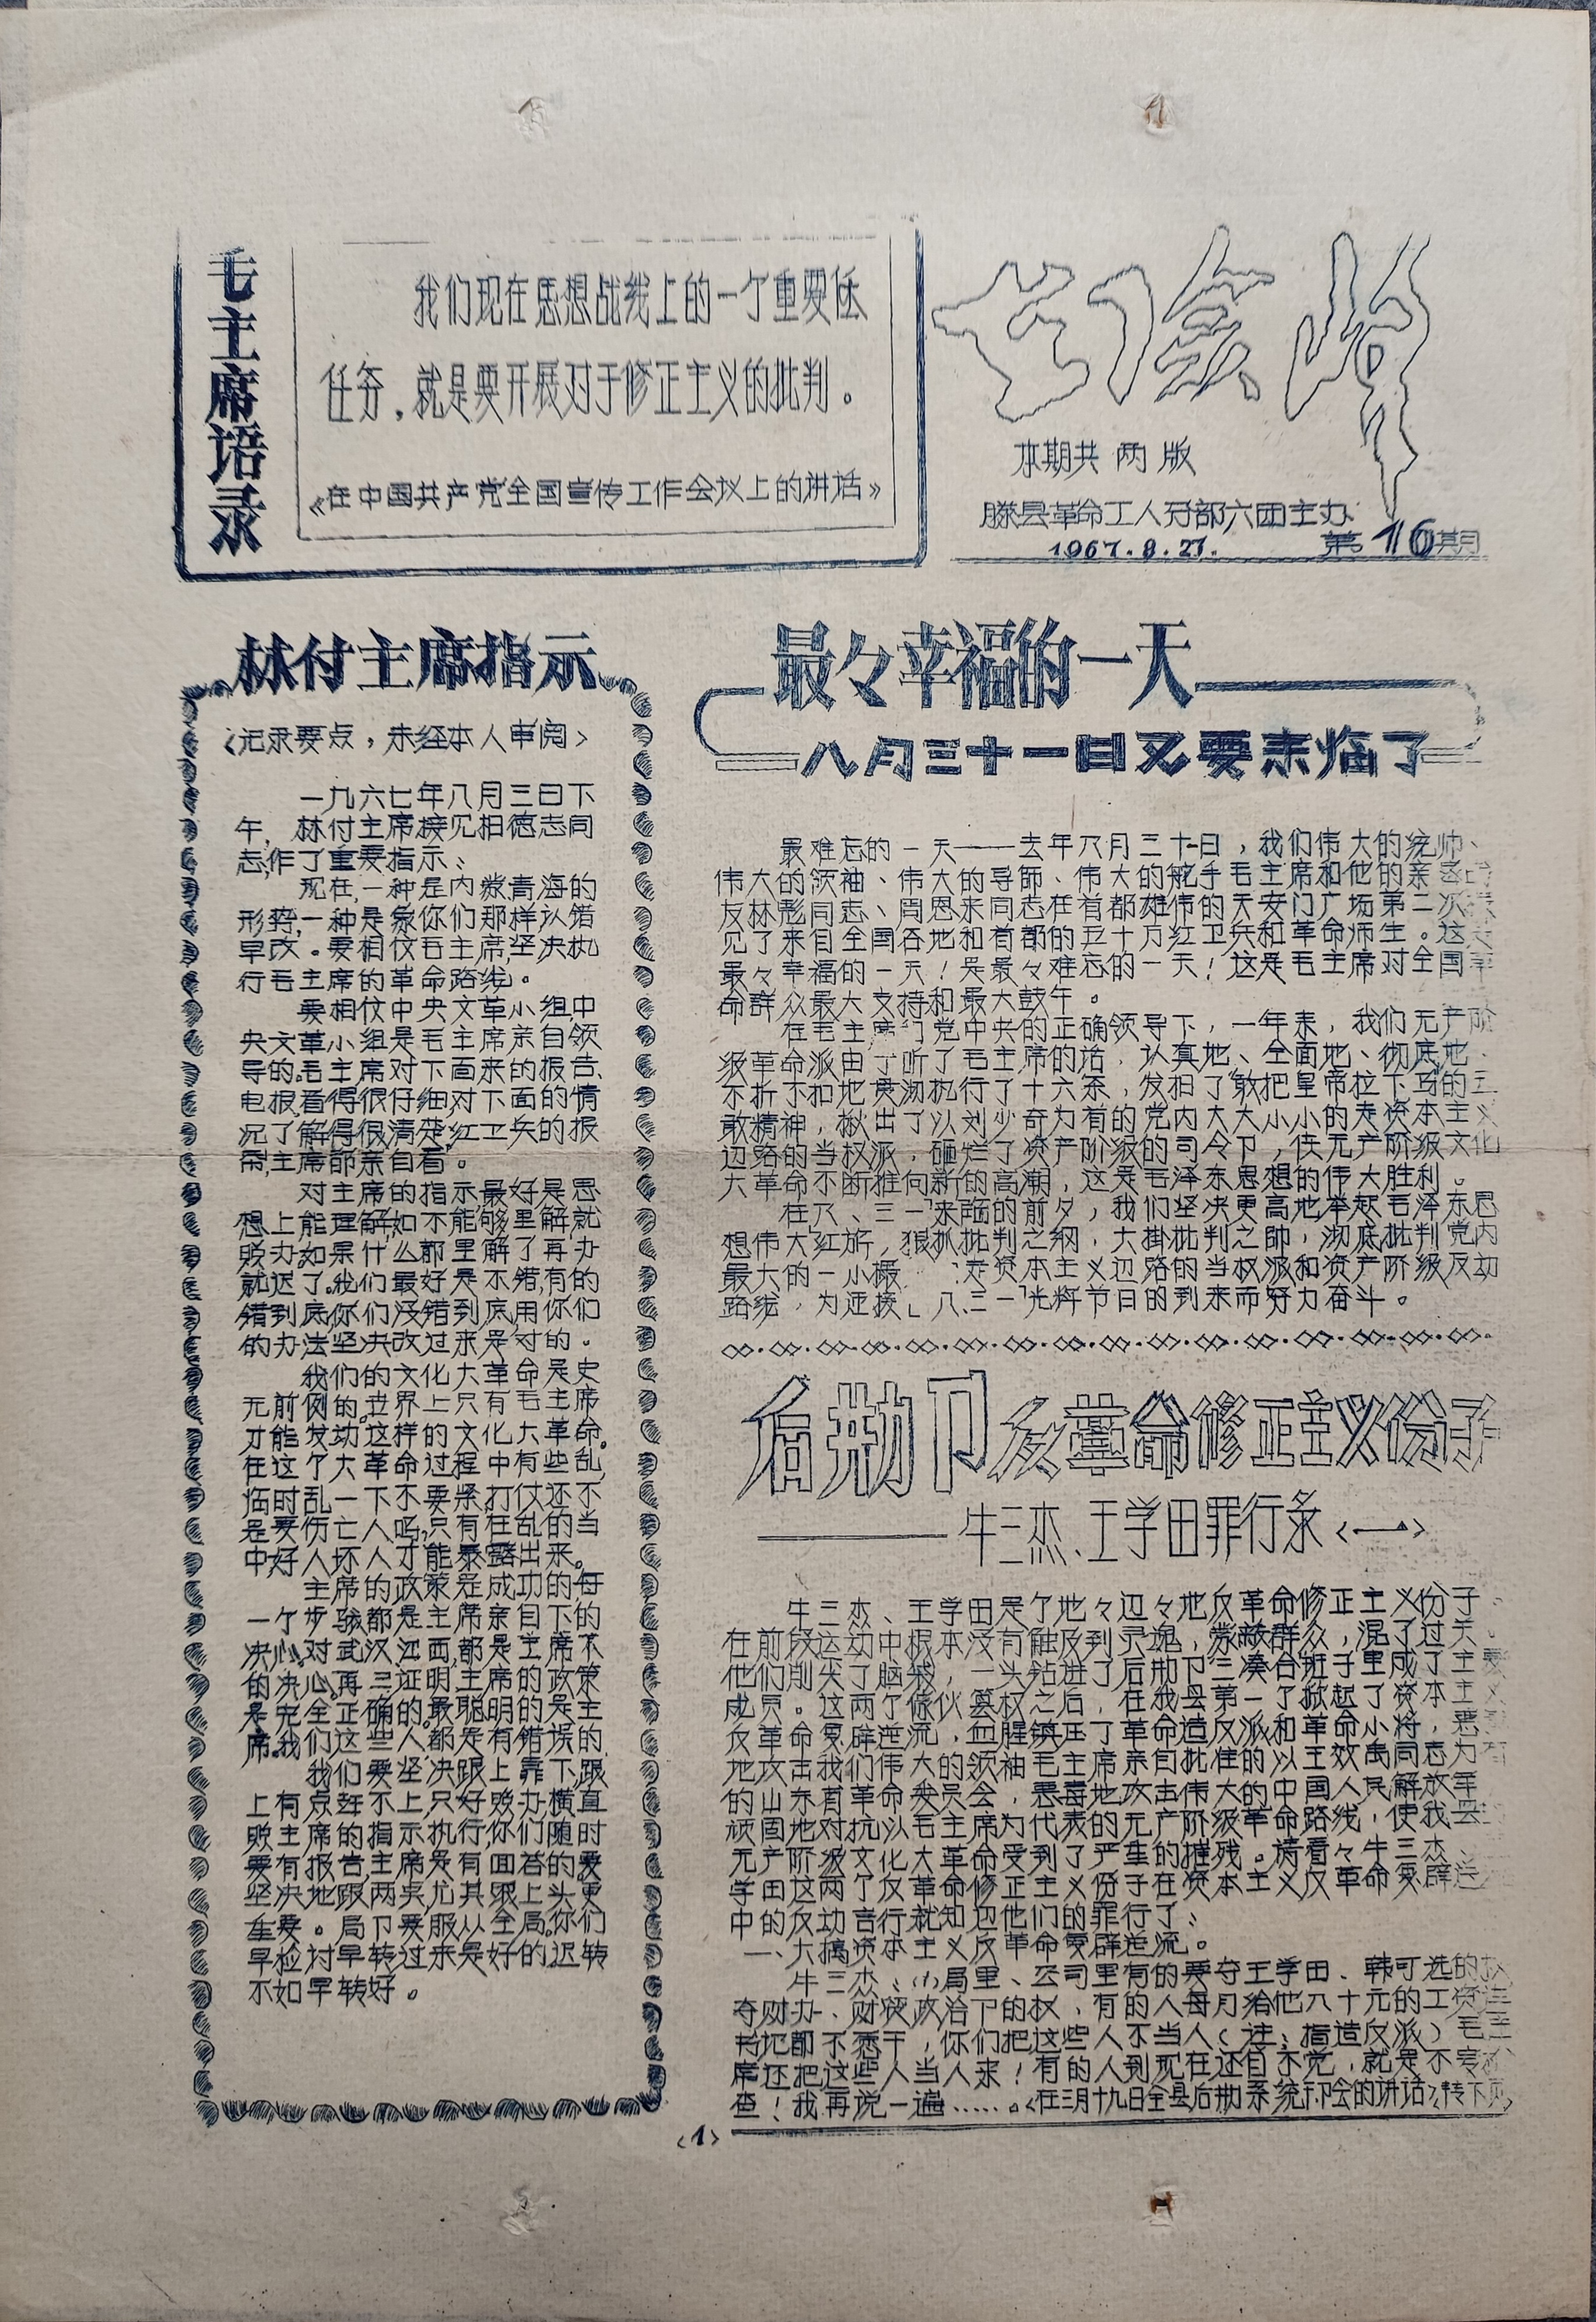 毛主席语录
我们现在思想战线上的一个重要任
任务,就是要开展对于修正主义的批判。
《在中国共产党全国宣传工作会议上的讲话》
本期共两版
滕县革命工人司部六团主办
1967.8.27. 第16期
林付主席指示
<记录要点,未经本人审阅>
一九六七年八月三日下
午,林付主席接见相德志同
志,作了重要指示:
现在,一种是内蒙青海的
形势,一种是象你们那样认错
早改。要相仗毛主席,坚决执
行毛主席的革命路线。
要相仗中央文革小组,中
央文革小组是毛主席亲自领
导的。毛主席对下面来的报告、
电报,看得很仔细,对下面的情
况了解得很清楚,红卫兵的报
帋,主席都亲自看。
对主席的指示,最好是思
想上能理解,如不能够里解,就
败办,如果什么都里解了再办
就迟了。我们最好是不错,有的
错到底,你们没错到底,用你们
的办法坚决改过来是对的。
我们的文化大革命是史
无前例的。世界上只有毛主席
才能发动这样的文化大革命。
在这个大革命过程中有些乱,
临时乱一下不要紧,打仗还不
是要伤亡人吗,只有在乱的当
中好人坏人才能暴露出来。
主席的政策是成功的,每
一个步骤都是主席亲自下的
决心。对武汉江西,都是主席下
的决心。再三证明主席的政策
是完全正确的。最聪明的是主
席。我们这些人都是有错误的
我们要坚决跟上靠下,跟
上有点赶不上,只好败办,横直
败主席的指示执行,你们随时
要有报告,主席是有回答的。要
坚决地跟两头,尤其跟上头更
重要。局卩要服从全局。你们
早检讨早转过来是好的,迟转
不如早转好。
最々幸福的一天
八月三十一日又要来临了
最难忘的一天——去年八月三十日,我们伟大的统帅、
伟大的领袖、伟大的导师、伟大的舵手毛主席和他的亲密战
友林彪同志、周恩来同志在首都雄伟的天安门广场第二次接
见了来自全国各地和首都的五十万红卫兵和革命师生。这是
最々幸福的一天!是最々难忘的一天!这是毛主席对全国革
命群众最大支持和最大鼓午。
在毛主席 党中央的正确领导下,一年来,我们无产阶
级革命派由于听了毛主席的话,认真地、全面地、彻底地、
不折不扣地贯沏执行了十六条,发扬了敢把皇帝拉下马的五
敢精神,揪出了以刘少奇为首的党内大大小小的走资本主义
辺路的当权派,砸烂了资产阶级的司令卩,使无产阶级文化
大革命不断推向新的高潮,这是毛泽东思想的伟大胜利。
在八、三一"来临的前夕,我们坚决更高地举起毛泽东思
想伟大红旂,狠抓批判之纲,大掛批判之帥,沏底批判党内
最大的一小撮 走资本主义辺路的当权派和资产阶级反动
路线,为迎接"八、三一"光辉节日的到来而努力奋斗。
后勅卩反革命修正主义份子
——牛三杰、王学田罪行录<一>
牛三杰、王学田是个地々辺々地反革命修正主义份子。
在前段运动中根本没有触及到灵魂,蒙蔽群众,混了过关。
他们削尖了脑袋,一头钻进了后勅卩三凑合班子里成了主要
成员。这两个傢伙篡权之后,在我县第一个掀起了资本主义
反革命复辟逆流,血腥镇压了革命造反派和革命小将,恶
地攻击我们伟大的领袖毛主席亲自批准的以王效禹同志为首
的山东省革命委员会,恶毒地攻击伟大的中国人民解放军
顽固地对抗以毛主席为代表的无产阶级革命路线,使我县
无产阶级文化大革命受到了严重的摧残。请看々牛三杰、
学田这两个反革命修正主义份子在资本主义反革命复辟逆
中的反动言行就知辺他们的罪行了:
一、大搞资本主义反革命复辟逆流。
牛三杰:"局里、公司里有的要夺王学田、韩可选的权
夺财办、财贸政治卩的权,有的人每月给他八十元的工资连
书记都不愿干,你们把这些人不当人(注:指造反派)毛主
席还把这些人当人来!有的人到现在还自不觉,就是不
查!我再说一遍……。<在三月十九日全县后勅系统卩会的讲话>(转下页)
<1>